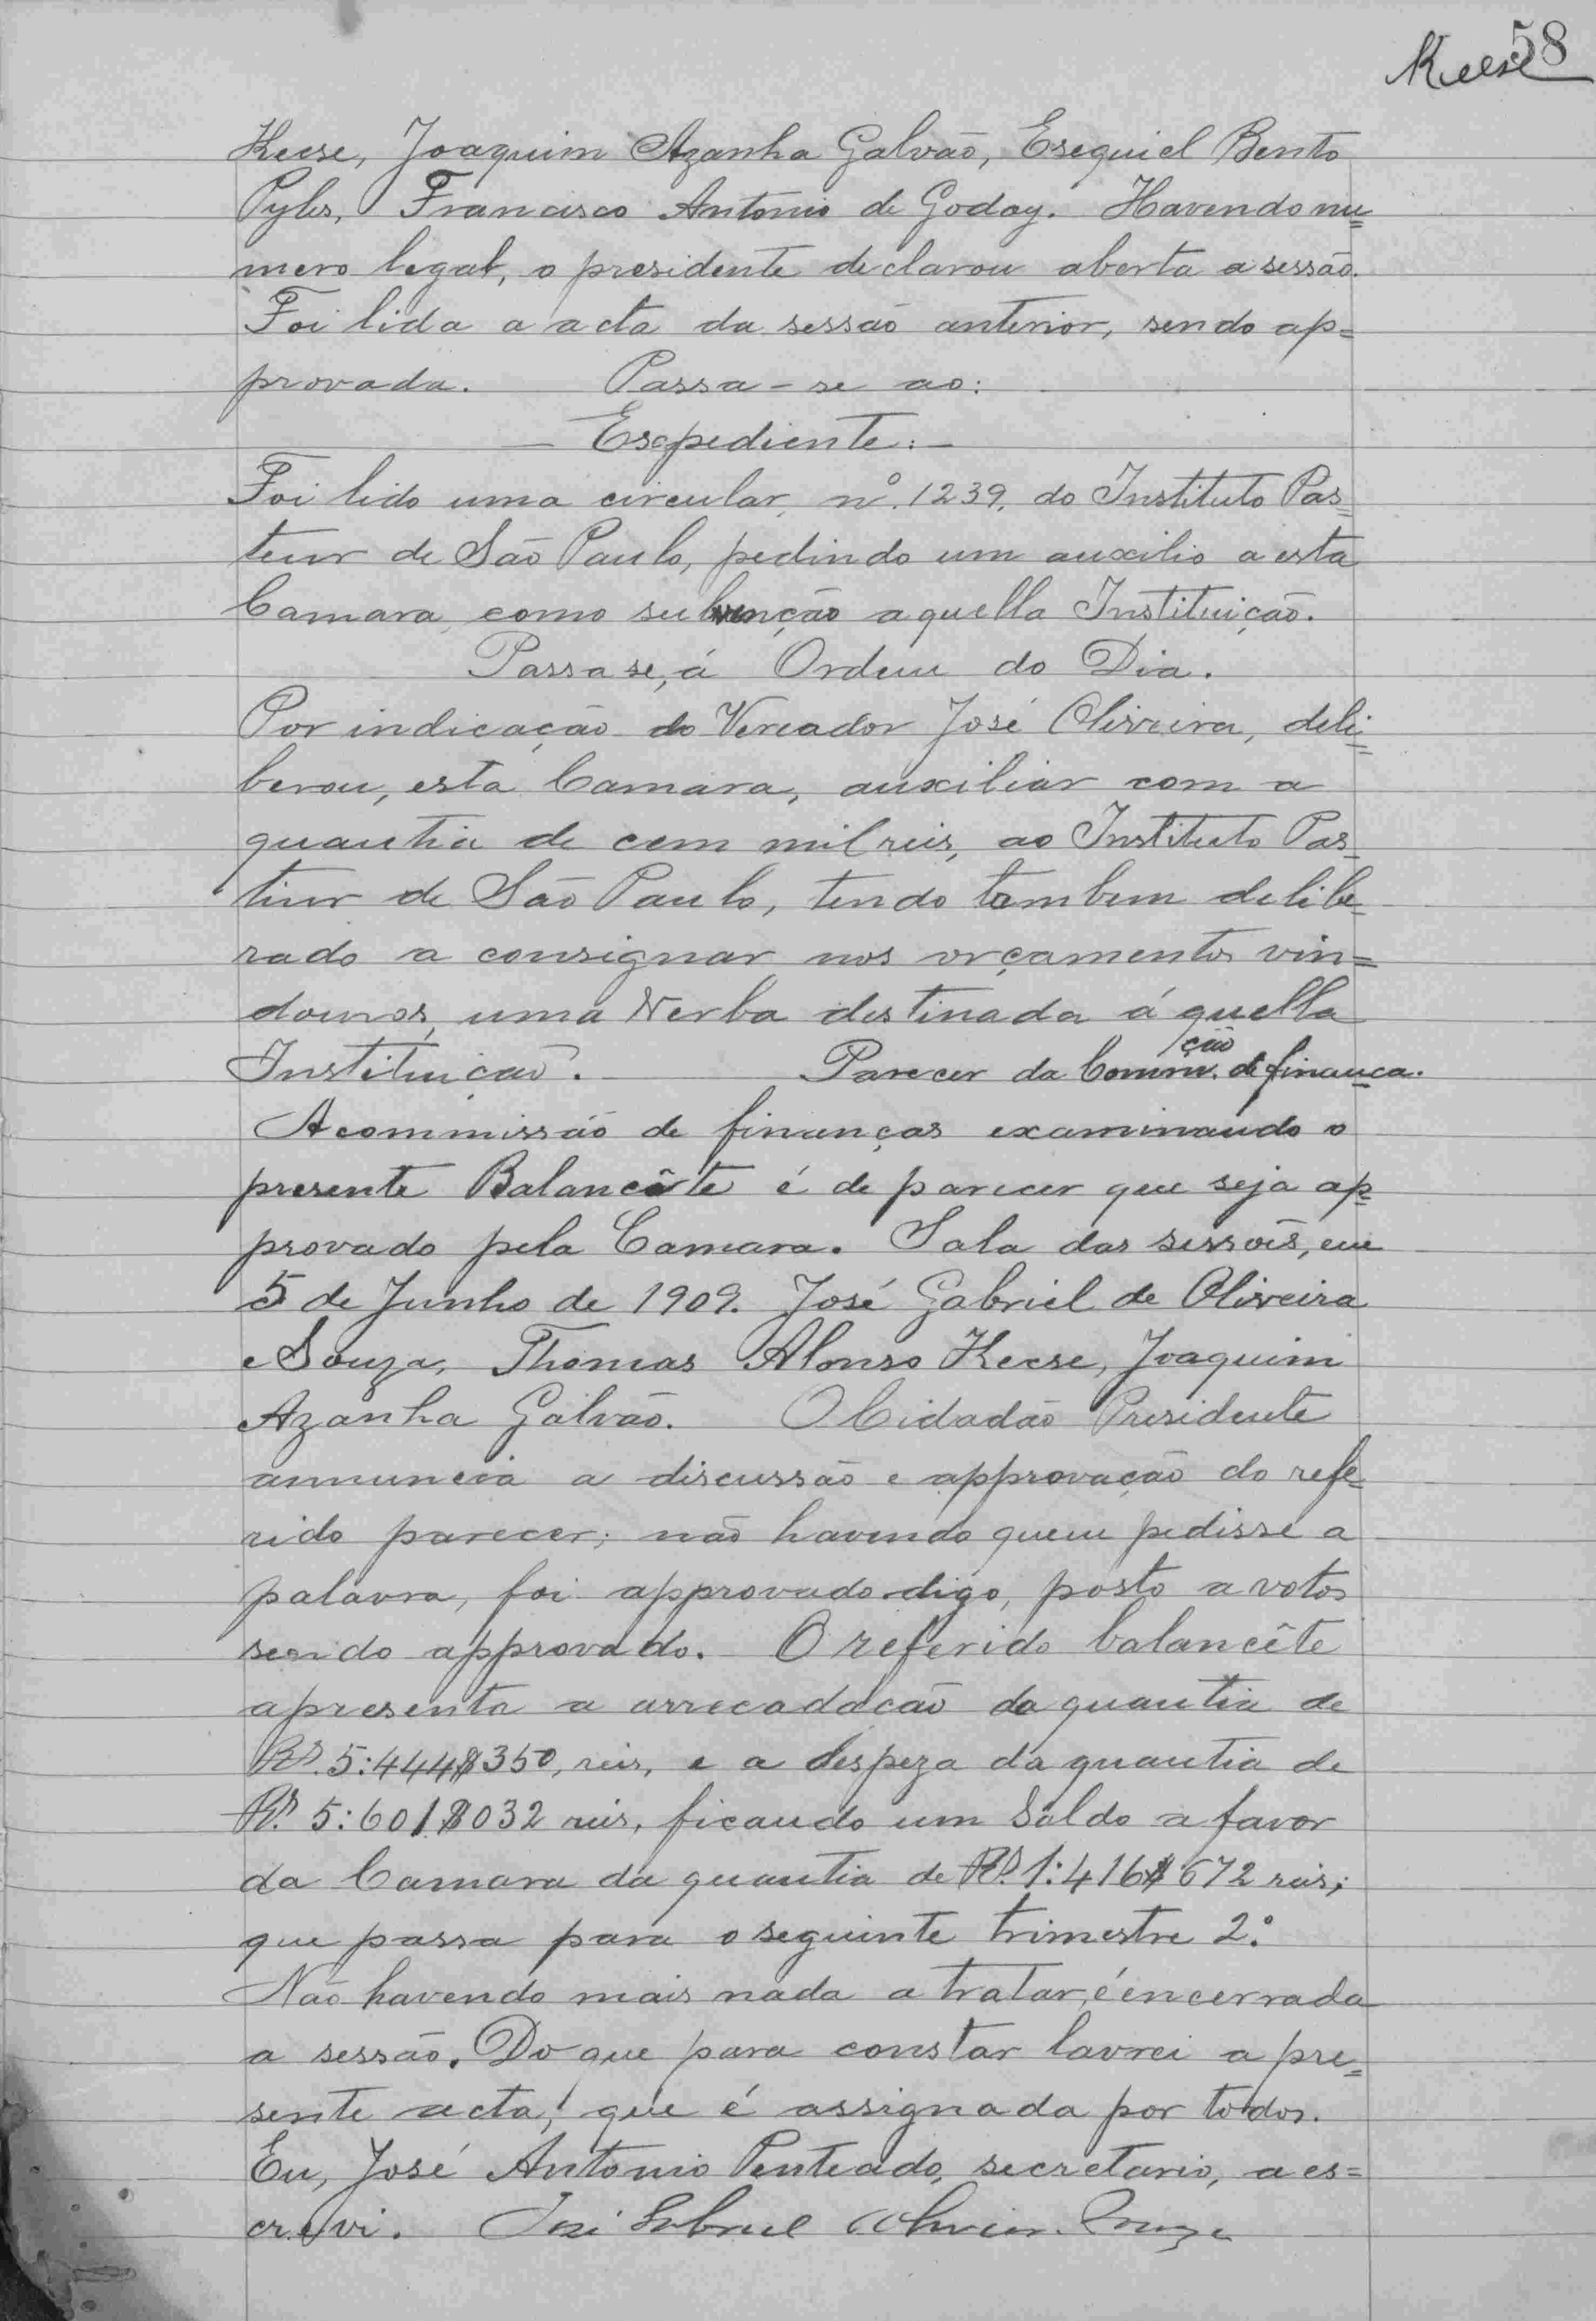 58
Keese
Keese, Joaquim Azanha Galvão, Esequiel Bento
Pyles, Francisco Antonio de Godoy. Havendo nu=
mero legal, o presidente declarou aberta a sessão.
Foi lida a acta da sessão anterior, sendo ap=
provada. Passa-se ao:
— Expediente: —
Foi lido uma circular, nº. 1239, do Instituto Pas=
teur de São Paulo, pedindo um auxilio a esta
Camara, como subvenção aquella Instituição.
Passa se, á Ordem do Dia.
Por indicação do Vereador José Oliveira, deli=
berou, esta Camara, auxiliar com a
quantia de cem mil reis, ao Instituto Pas=
teur de São Paulo, tendo tambem delibe=
rado a consignar nos orçamentos vin=
douros, uma Verba destinada á quella
Instituição. Parecer da Comm.ção de finança.
A commissão de finanças examinando o
presente Balancête é de parecer que seja ap=
provado pela Camara. Sala das sessões, em
5 de Junho de 1909. José Gabriel de Oliveira
e Souza, Thomas Alonso Keese, Joaquim
Azanha Galvão. O Cidadão Presidente
annuncia a discussão e approvação do refe=
rido parecer; não havendo quem pedisse a
palavra, foi approvado digo, posto a votos
sendo approvado. O referido balancête
apresenta a arrecadacão da quantia de
Rs. 5:444$350, reis, e a despeza da quantia de
Rs. 5:601$032 reis, ficando um Saldo a favor
da Camara da quantia de Rs. 1:416$672 reis;
que passa para o seguinte trimestre 2º.
Não havendo mais nada a tratar, é encerrada
a sessão. Do que para constar lavrei a pre=
sente acta, que é assignada por todos.
Eu, José Antonio Penteado, secretario, a es=
crevi. José Gabriel Oliveira Souza